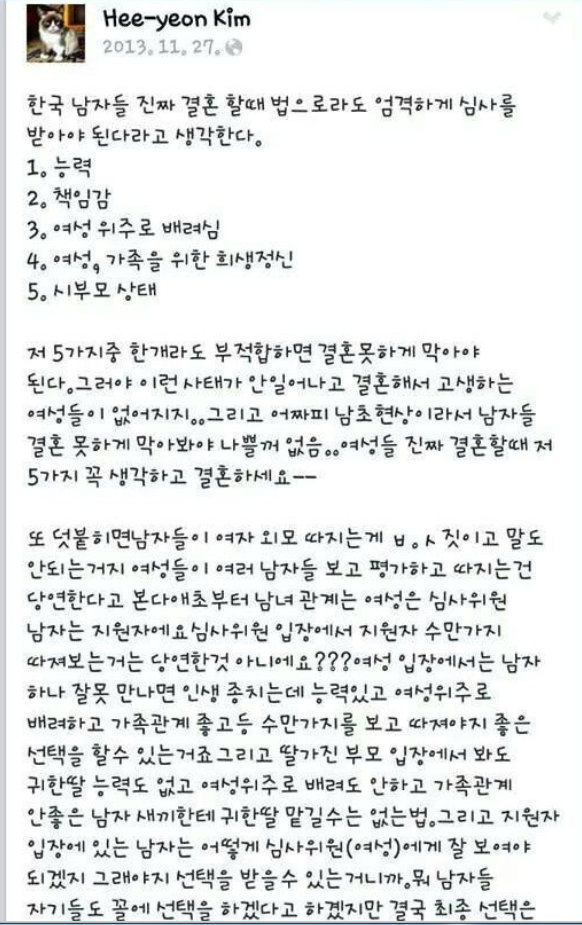 Hee-yeon Kim
2013. 11. 27.
한국 남자들 진짜 결혼 할때 법으로라도 엄격하게 심사를
받아야 된다라고 생각한다.
1. 능력
2. 책임감
3. 여성 위주로 배려심
4. 여성, 가족을 위한 희생정신
5. 시부모 상태
저 5가지중 한개라도 부적합하면 결혼못하게 막아야
된다.그러야 이런 사태가 안일어나고 결혼해서 고생하는
여성들이 없어지지..그리고 어짜피 남초현상이라서 남자들
결혼 못하게 막아봐야 나쁠꺼 없음..여성들 진짜 결혼할때 저
5가지 꼭 생각하고 결혼하세요--
또 덧붙히면남자들이 여자 외모 따지는게 ㅂ.ㅅ 짓이고 말도
안되는거지 여성들이 여러 남자들 보고 평가하고 따지는건
당연한다고 본다애초부터 남녀 관계는 여성은 심사위원
남자는 지원자에요심사위원 입장에서 지원자 수만가지
따져보는거는 당연한것 아니에요???여성 입장에서는 남자
하나 잘못 만나면 인생 종치는데 능력있고 여성위주로
배려하고 가족관계 좋고등 수만가지를 보고 따져야지 좋은
선택을 할수 있는거죠그리고 딸가진 부모 입장에서 봐도
귀한딸 능력도 없고 여성위주로 배려도 안하고 가족관계
안좋은 남자 새끼한테 귀한딸 맡길수는 없는법.그리고 지원자
입장에 있는 남자는 어떻게 심사위원(여성)에게 잘 보여야
되겠지 그래야지 선택을 받을수 있는거니까.뭐 남자들
자기들도 꼴에 선택을 하겠다고 하겠지만 결국 최종 선택은